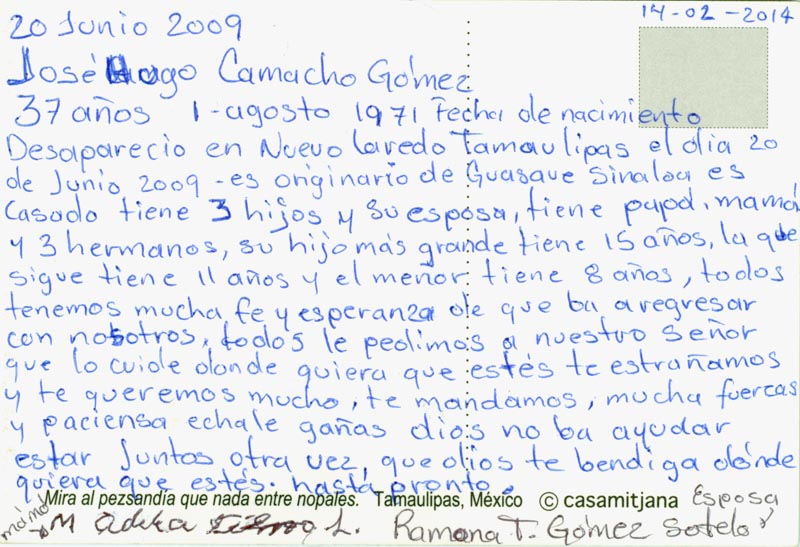 14-02-2014
20 Junio 2009
José Hugo Camacho Gómez
37 años 1-agosto 1971 Fecha de nacimiento
Desaparecio en Nuevo Laredo Tamaulipas el dia 20
de Junio 2009 - es originario de Guasave Sinaloa es
Casado tiene 3 hijos y su esposa, tiene papá, mamá
y 3 hermanos, su hijo más grande tiene 15 años, la que
sigue tiene 11 años y el menor tiene 8 años, todos
tenemos mucha fe y esperanza de que ba a regresar
con nosotros, todos le pedimos a nuestro Señor
que lo cuide donde quiera que estés te estrañamos
y te queremos mucho, te mandamos, mucha fuercas
y paciensa echale gañas dios no ba ayudar
estar Juntos otra vez, que dios te bendiga dónde
quiera que estés. hasta pronto.
Mira al pezsandía que nada entre nopales. Tamaulipas, México © casamitjana Esposa
mamá M L. Ramona T. Gómez Sotelo